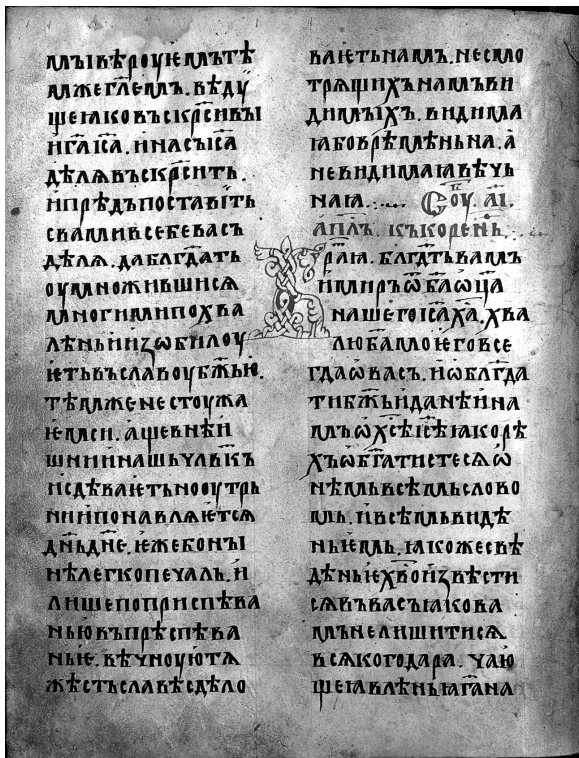 мꙑвѣроуѥмътѣ
мжегл҃емъ.вѣдꙋ
щеꙗковъскрⷭ҇сивꙑ
и҆га҃іс҃а.инасъіс҃а
дѣлѧвъскрⷭ҇ситъ.
и҆прѣдъпоставїть
свамивсебевасъ
дѣлѧ.дабл҃гдⷣать
оумножившисѧ
многимипохва
лѣньиїꙁобилоу
ѥтьвъславоубж҃ью.
тѣмженестоужа
ѥмси.а҆щевнѣи҆
шнїинашьчл҃вкъ
и҆сдѣваѥтьнооутрь
нїипонавлѧѥтсѧ
дн҃ьдн҃е.ѥжебонꙑ
нѣлегкопечаль.и҆
лишепоприспѣва
ньювъпрѣспѣва
ньѥ.вѣчноуютѧ
жѣстьславѣсдѣло
ваѥтьнамъ.несмо
трѧщихънамъви
димꙑхъ.видима
ꙗбоврѣмѣньна.а҆
невидимаꙗвѣчь
наꙗ.:... Соу.аі.
ап҃лъ.къкоренⷴ҇.:..
Братиꙗ.бл҃гдⷣтьвамъ
и҆миръѿба҃ѡц҃а
нашегоіс҃ах҃а.хва
любамоѥговсе
гдаѡвасъ.и҆ѡбл҃гда
тибж҃ьиданѣина
мъѡхс҃ѣіс҃ѣꙗкорѣ
хъѡбг҃атистесѧѡ
нѣмьвсѣмьслово
мь.и҆всѣмьвидѣ
ньѥмь.ꙗкожесвѣ
дѣньѥхв҃оиꙁвѣсти
сѧвъвасъꙗкова
мънелишитисѧ
всѧкогодара.чаю
щеꙗвлѣньꙗга҃на